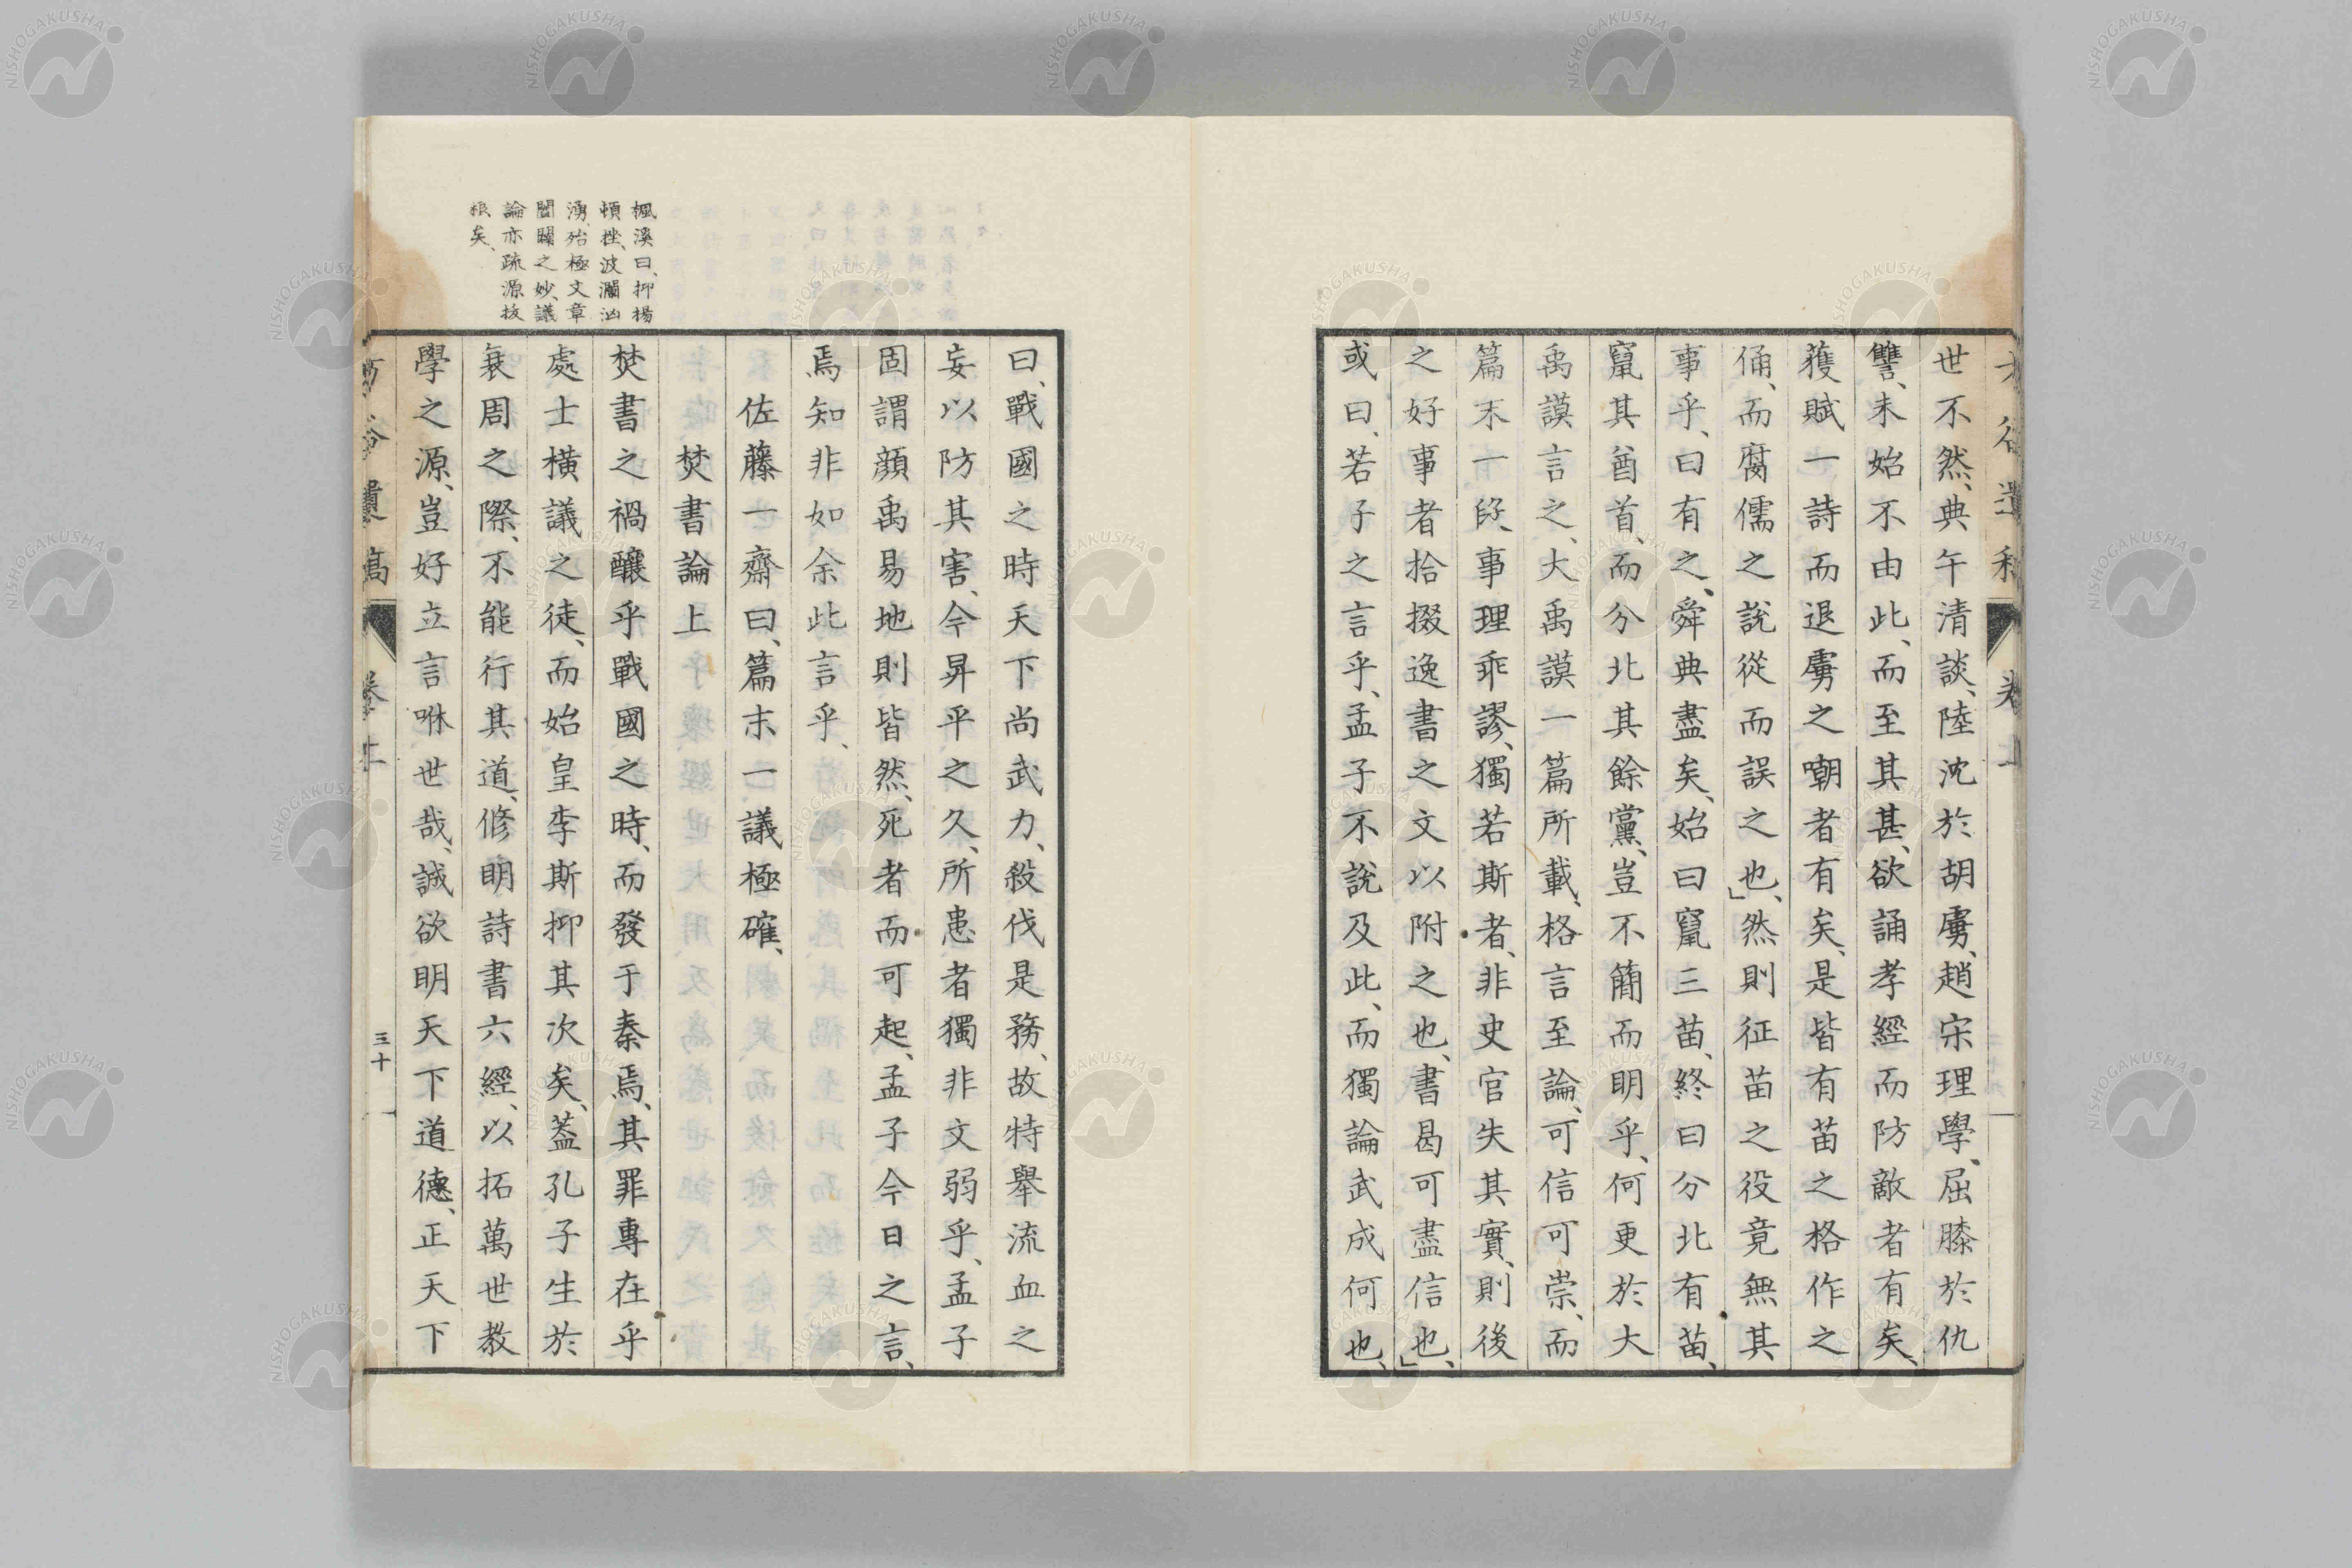 世不然、典午清談、陸沈於胡虜、趙宋理學、屈膝於仇
讐、未始不由此、而至其甚、欲誦孝經而防敵者有矣、
獲賦一詩而退虜之嘲者有矣、是皆有苗之格作之
俑、而腐儒之說從而誤之也、」然則征苗之役竟無其
事乎、曰有之、舜典盡矣、始曰竄三苗、終曰分北有苗、
竄其酋首、而分北其餘黨、豈不簡而明乎、何更於大
禹謨言之、大禹謨一篇所載、格言至論、可信可崇、而
篇末一段、事理乖謬、獨若斯者、非史官失其實、則後
之好事者拾掇逸書之文以附之也、書曷可盡信也、」
或曰、若子之言乎、孟子不說及此、而獨論武成何也、
曰、戰國之時天下尚武力、殺伐是務、故特舉流血之
妄以防其害、今昇平之久、所患者獨非文弱乎、孟子
固謂顏禹易地則皆然、死者而可起、孟子今日之言、
焉知非如余此言乎、
佐藤一齋曰、篇末一議極確、
焚書論上
焚書之禍釀乎戰國之時、而發于秦焉、其罪專在乎
處士橫議之徒、而始皇李斯抑其次矣、蓋孔子生於
衰周之際、不能行其道、修明詩書六經、以拓萬世教
學之源、豈好立言咻世哉、誠欲明天下道德、正天下
楓溪曰、抑揚
頓挫、波瀾汹
湧、殆極文章
闔闢之妙、議
論亦疏源拔
根矣、
卷上
三十